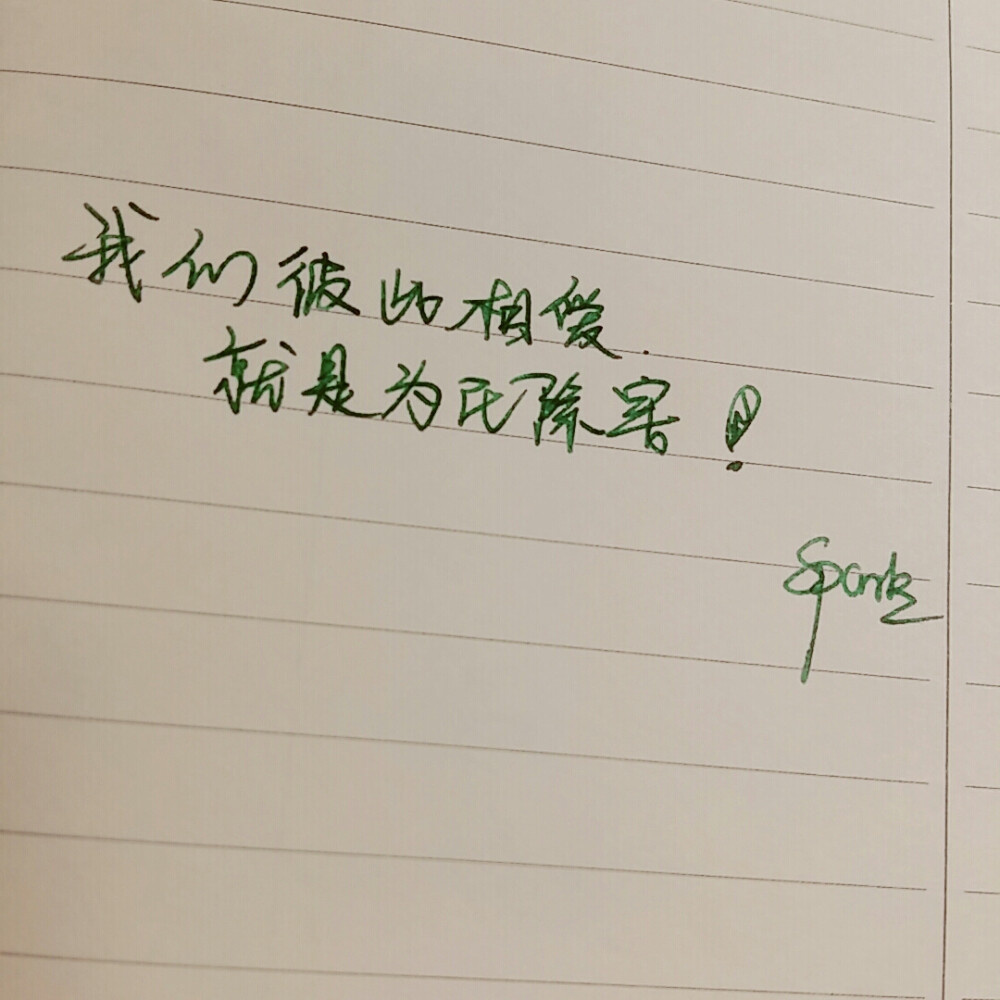 我们彼此相爱.
就是为民除害!
Spark